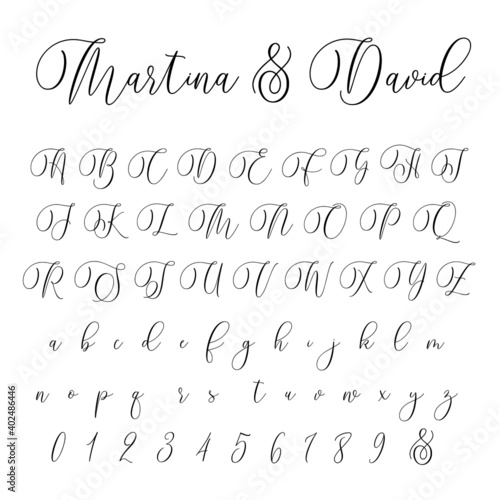 Martina & David
A B C D E F G H I
J K L M N O P Q
R S T U V W X Y Z
a b c d e f g h i j k l m
n o p q r s t u v w x y z
0 1 2 3 4 5 6 7 8 9 &
Adobe Stock | #402486446